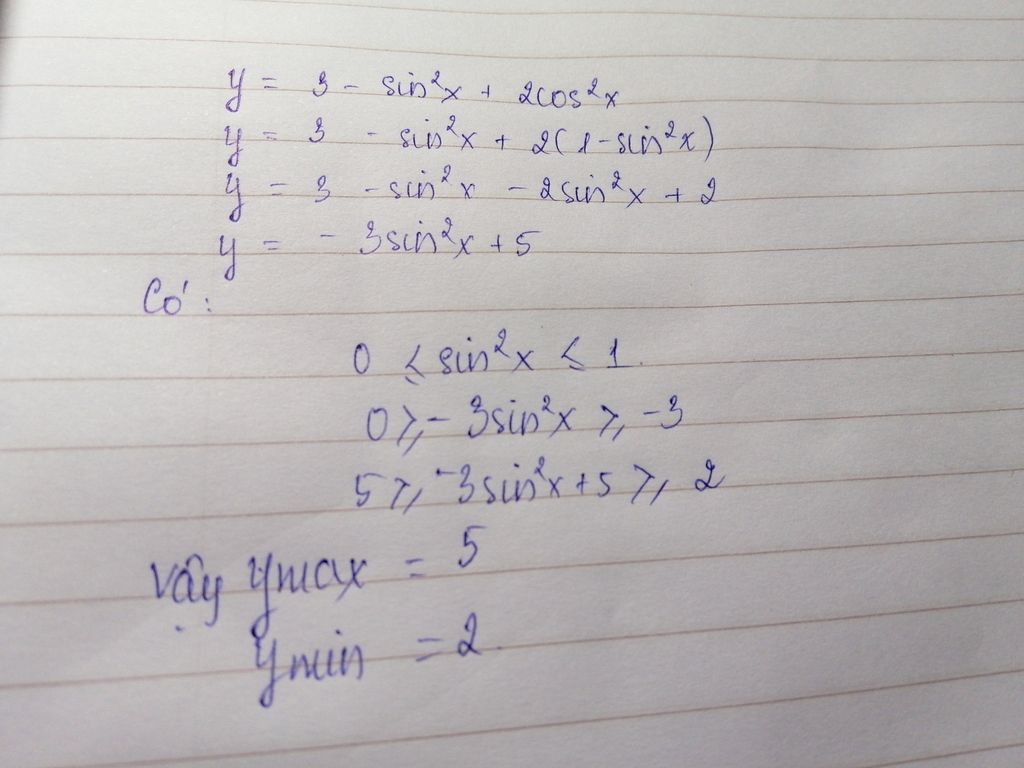 y = 3 - sin²x + 2cos²x
y = 3 - sin²x + 2(1-sin²x)
y = 3 - sin²x - 2sin²x + 2
y = - 3sin²x + 5
Có :
0 ≤ sin²x ≤ 1.
0 ≥ - 3sin²x ≥ -3
5 ≥ -3sin²x + 5 ≥ 2
Vậy ymax = 5
ymin = 2.